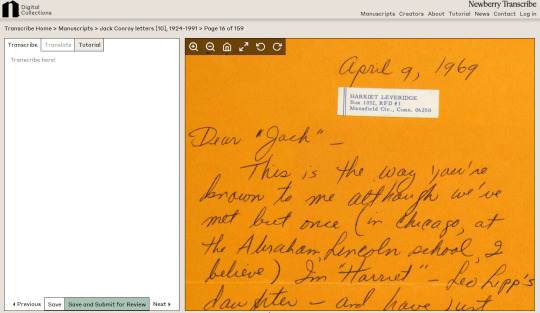 Digital
Collections
Newberry Transcribe
Manuscripts Creators About Tutorial News Contact Log in
Transcribe Home > Manuscripts > Jack Conroy letters [10], 1924-1991 > Page 16 of 159
Transcribe Translate Tutorial
Transcribe here!
Previous Save Save and Submit for Review Next
April 9, 1969
HARRIET LEVERIDGE
Box 105L, RFD #1
Mansfield Ctr., Conn. 06250
Dear "Jack" –
This is the way you're
known to me although we've
met but once (in Chicago, at
the Abraham Lincoln school, I
believe) I'm "Harriet" – Leo Lipp's
daughter – and have just